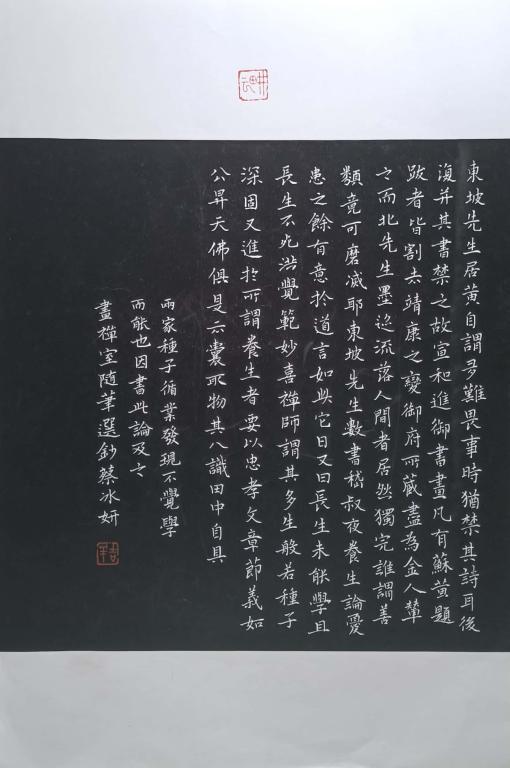 東坡先生居黃自謂多難畏事時猶禁其詩耳後
復并其書禁之故宣和進御書畫凡有蘇黃題
跋者皆割去靖康之變御府所藏盡為金人輦
之而北先生墨迹流落人間者居然獨完誰謂善
類竟可磨滅耶東坡先生數書嵇叔夜養生論憂
患之餘有意於道言如此它日又曰長生未能學且
長生不死洪覺範妙喜禪師謂其多生般若種子
深固又進於所謂養生者要以忠孝文章節義如
公昇天佛俱是六囊耶物其八識田中自具
兩家種子循業發現不覺學
而能也因書此論及之
畫禪室隨筆選鈔蔡冰妍